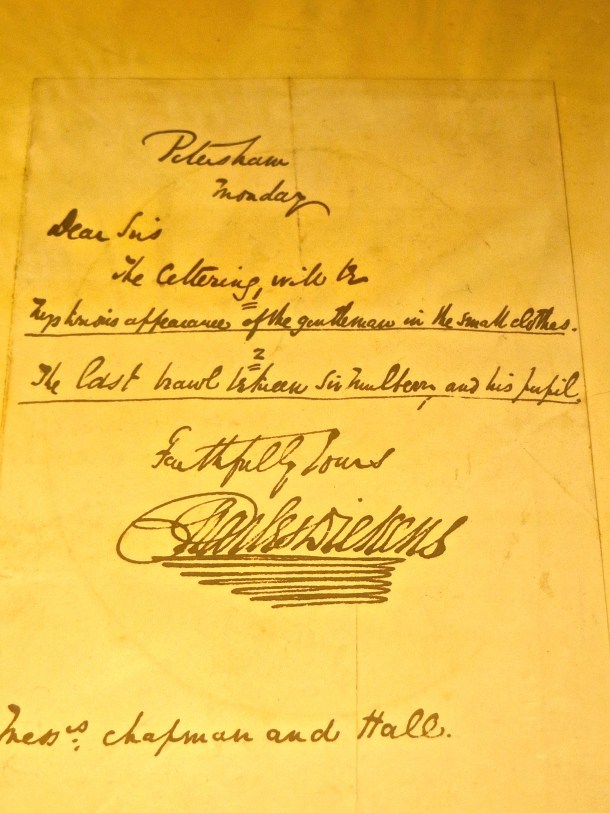 Petersham
Monday
Dear Sirs
The Lettering, will be
1
Mysterious appearance of the gentleman in the small clothes.
2
The last brawl between Sir Mulberry, and his pupil,
Faithfully Yours
Charles Dickens
Messrs. Chapman and Hall.